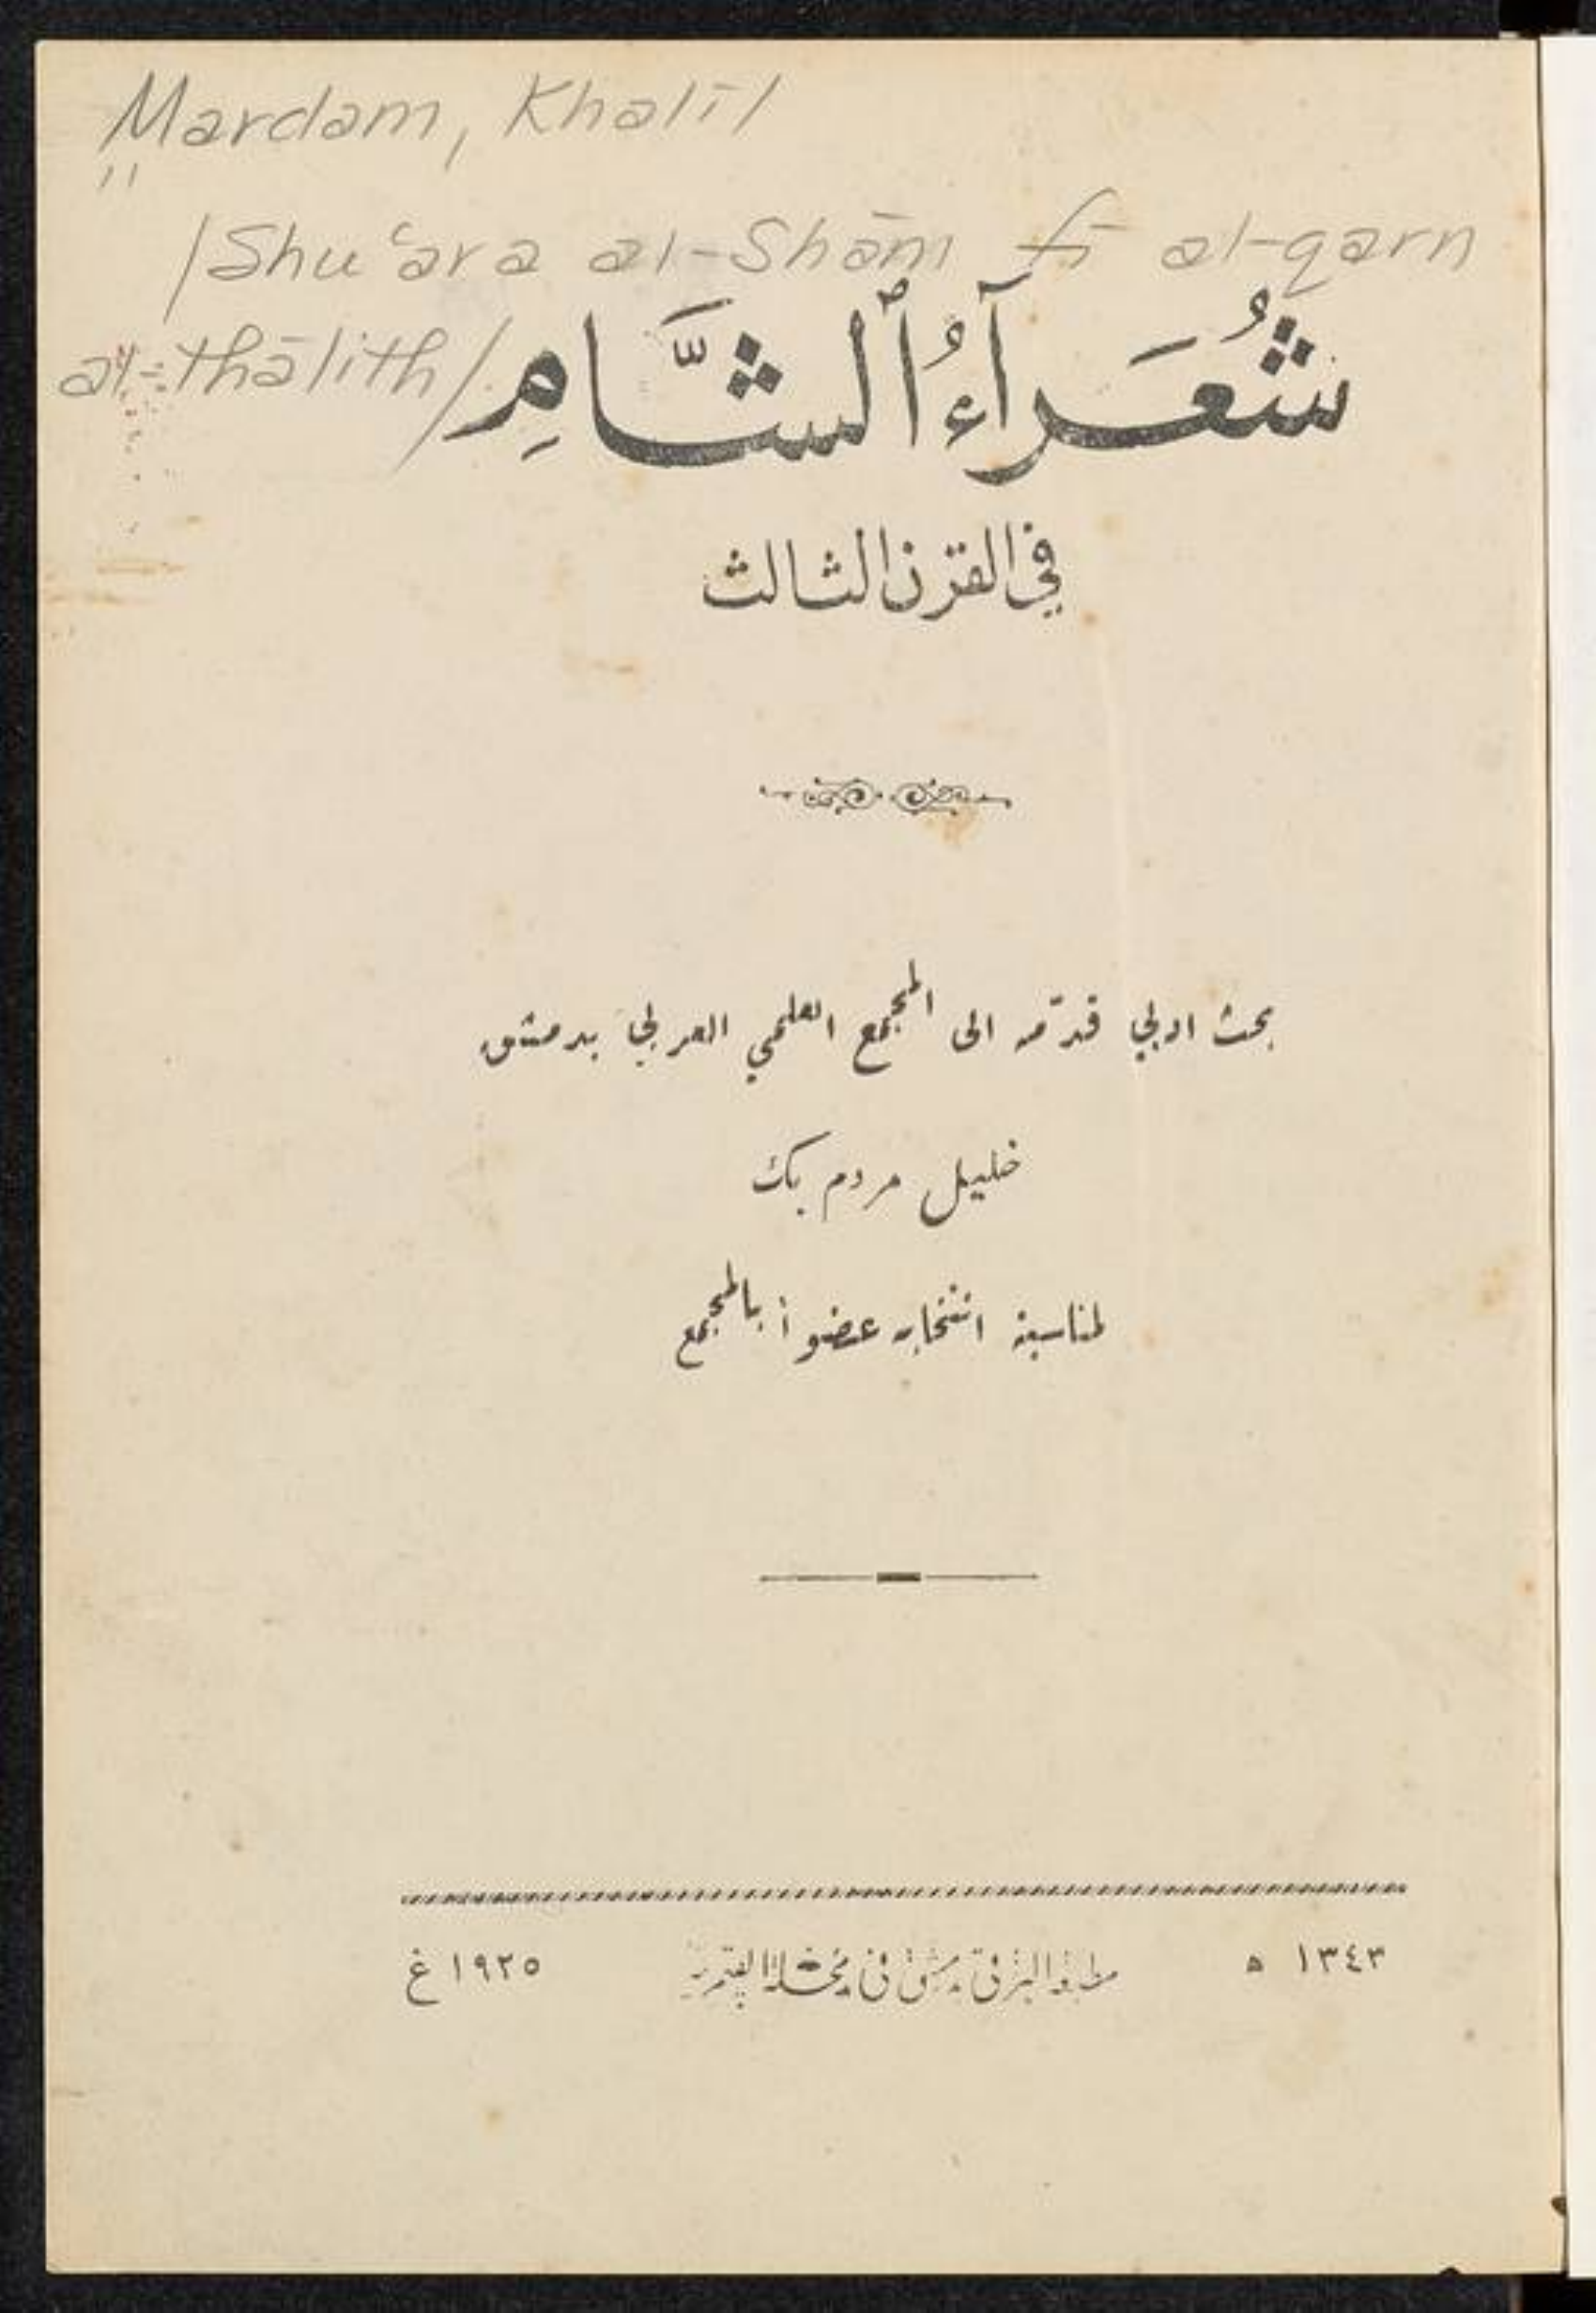 Mardam, Khalīl
/Shu‘ara al-Shām fī al-qarn
al-thālith/
شُعَرَآءُ ٱلشَّامِ
في القرن الثالث
بحث ادبي قدّمه الى المجمع العلمي العربي بدمشق
خليل مردم بك
لمناسبة انتخابه عضواً بالمجمع
١٣٤٣ ه مطبعة الترقي بدمشق في محلة القيمرية ١٩٢٥ غ